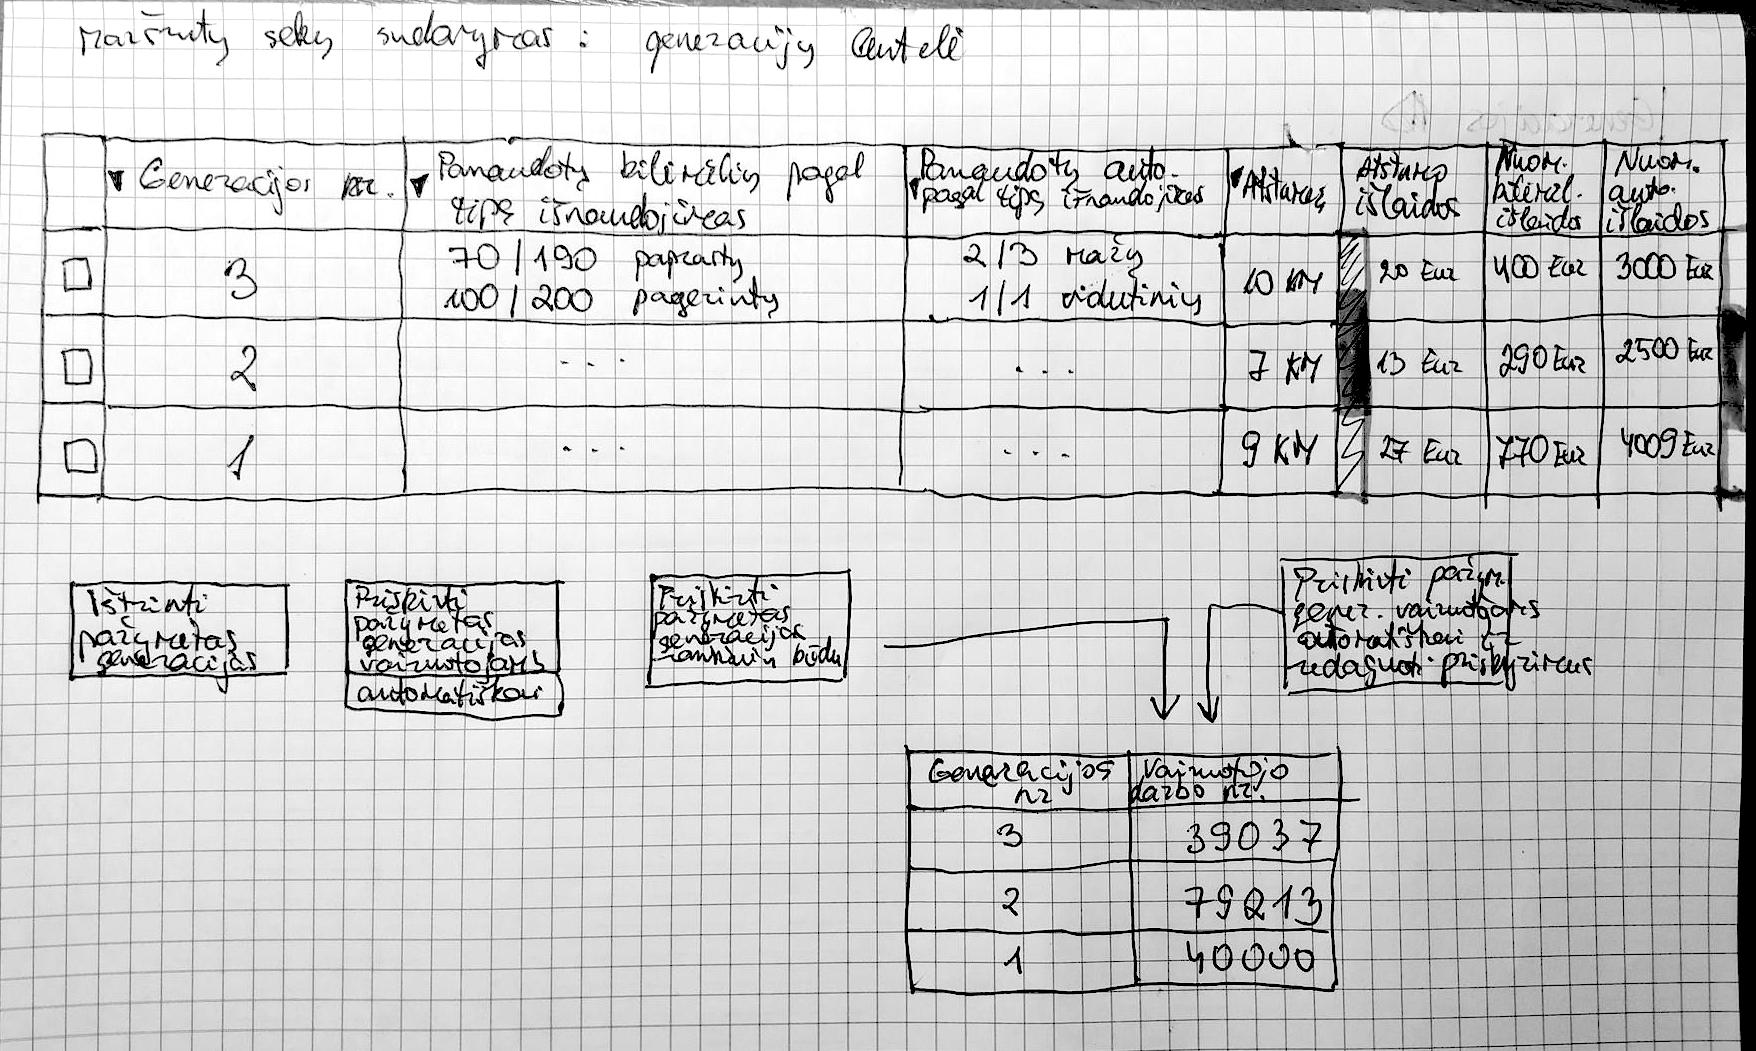 Maršrutų sekų sudarymas: generacijų lentelė
▼ Generacijos nr.
▼ Panaudotų bilirėlių pagal
tipą išnaudojimas
Panaudotų auto.
▼ pagal tipą išnaudojimas
▼ Atstumas
Atstumo
išlaidos
Nuom.
išlaidos
Nuom.
auto.
išlaidos
3
70/190 paprastų
100/200 pagerintų
2/3 mažų
1/1 vidutinių
10 KM
20 Eur
400 Eur
3000 Eur
2
...
...
7 KM
13 Eur
290 Eur
2500 Eur
1
...
...
9 KM
27 Eur
770 Eur
4009 Eur
Ištrinti
pažymėtas
generacijas
Priskirti
pažymėtas
generacijas
vairuotojams
automatiškai
Priskirti
pažymėtas
generacijas
rankiniu būdu
Priskirti pažym.
gener. vairuotojams
automatiškai ir
redaguoti priskyrimus
Generacijos
nr
Vairuotojo
darbo nr.
3
39037
2
79213
1
40000